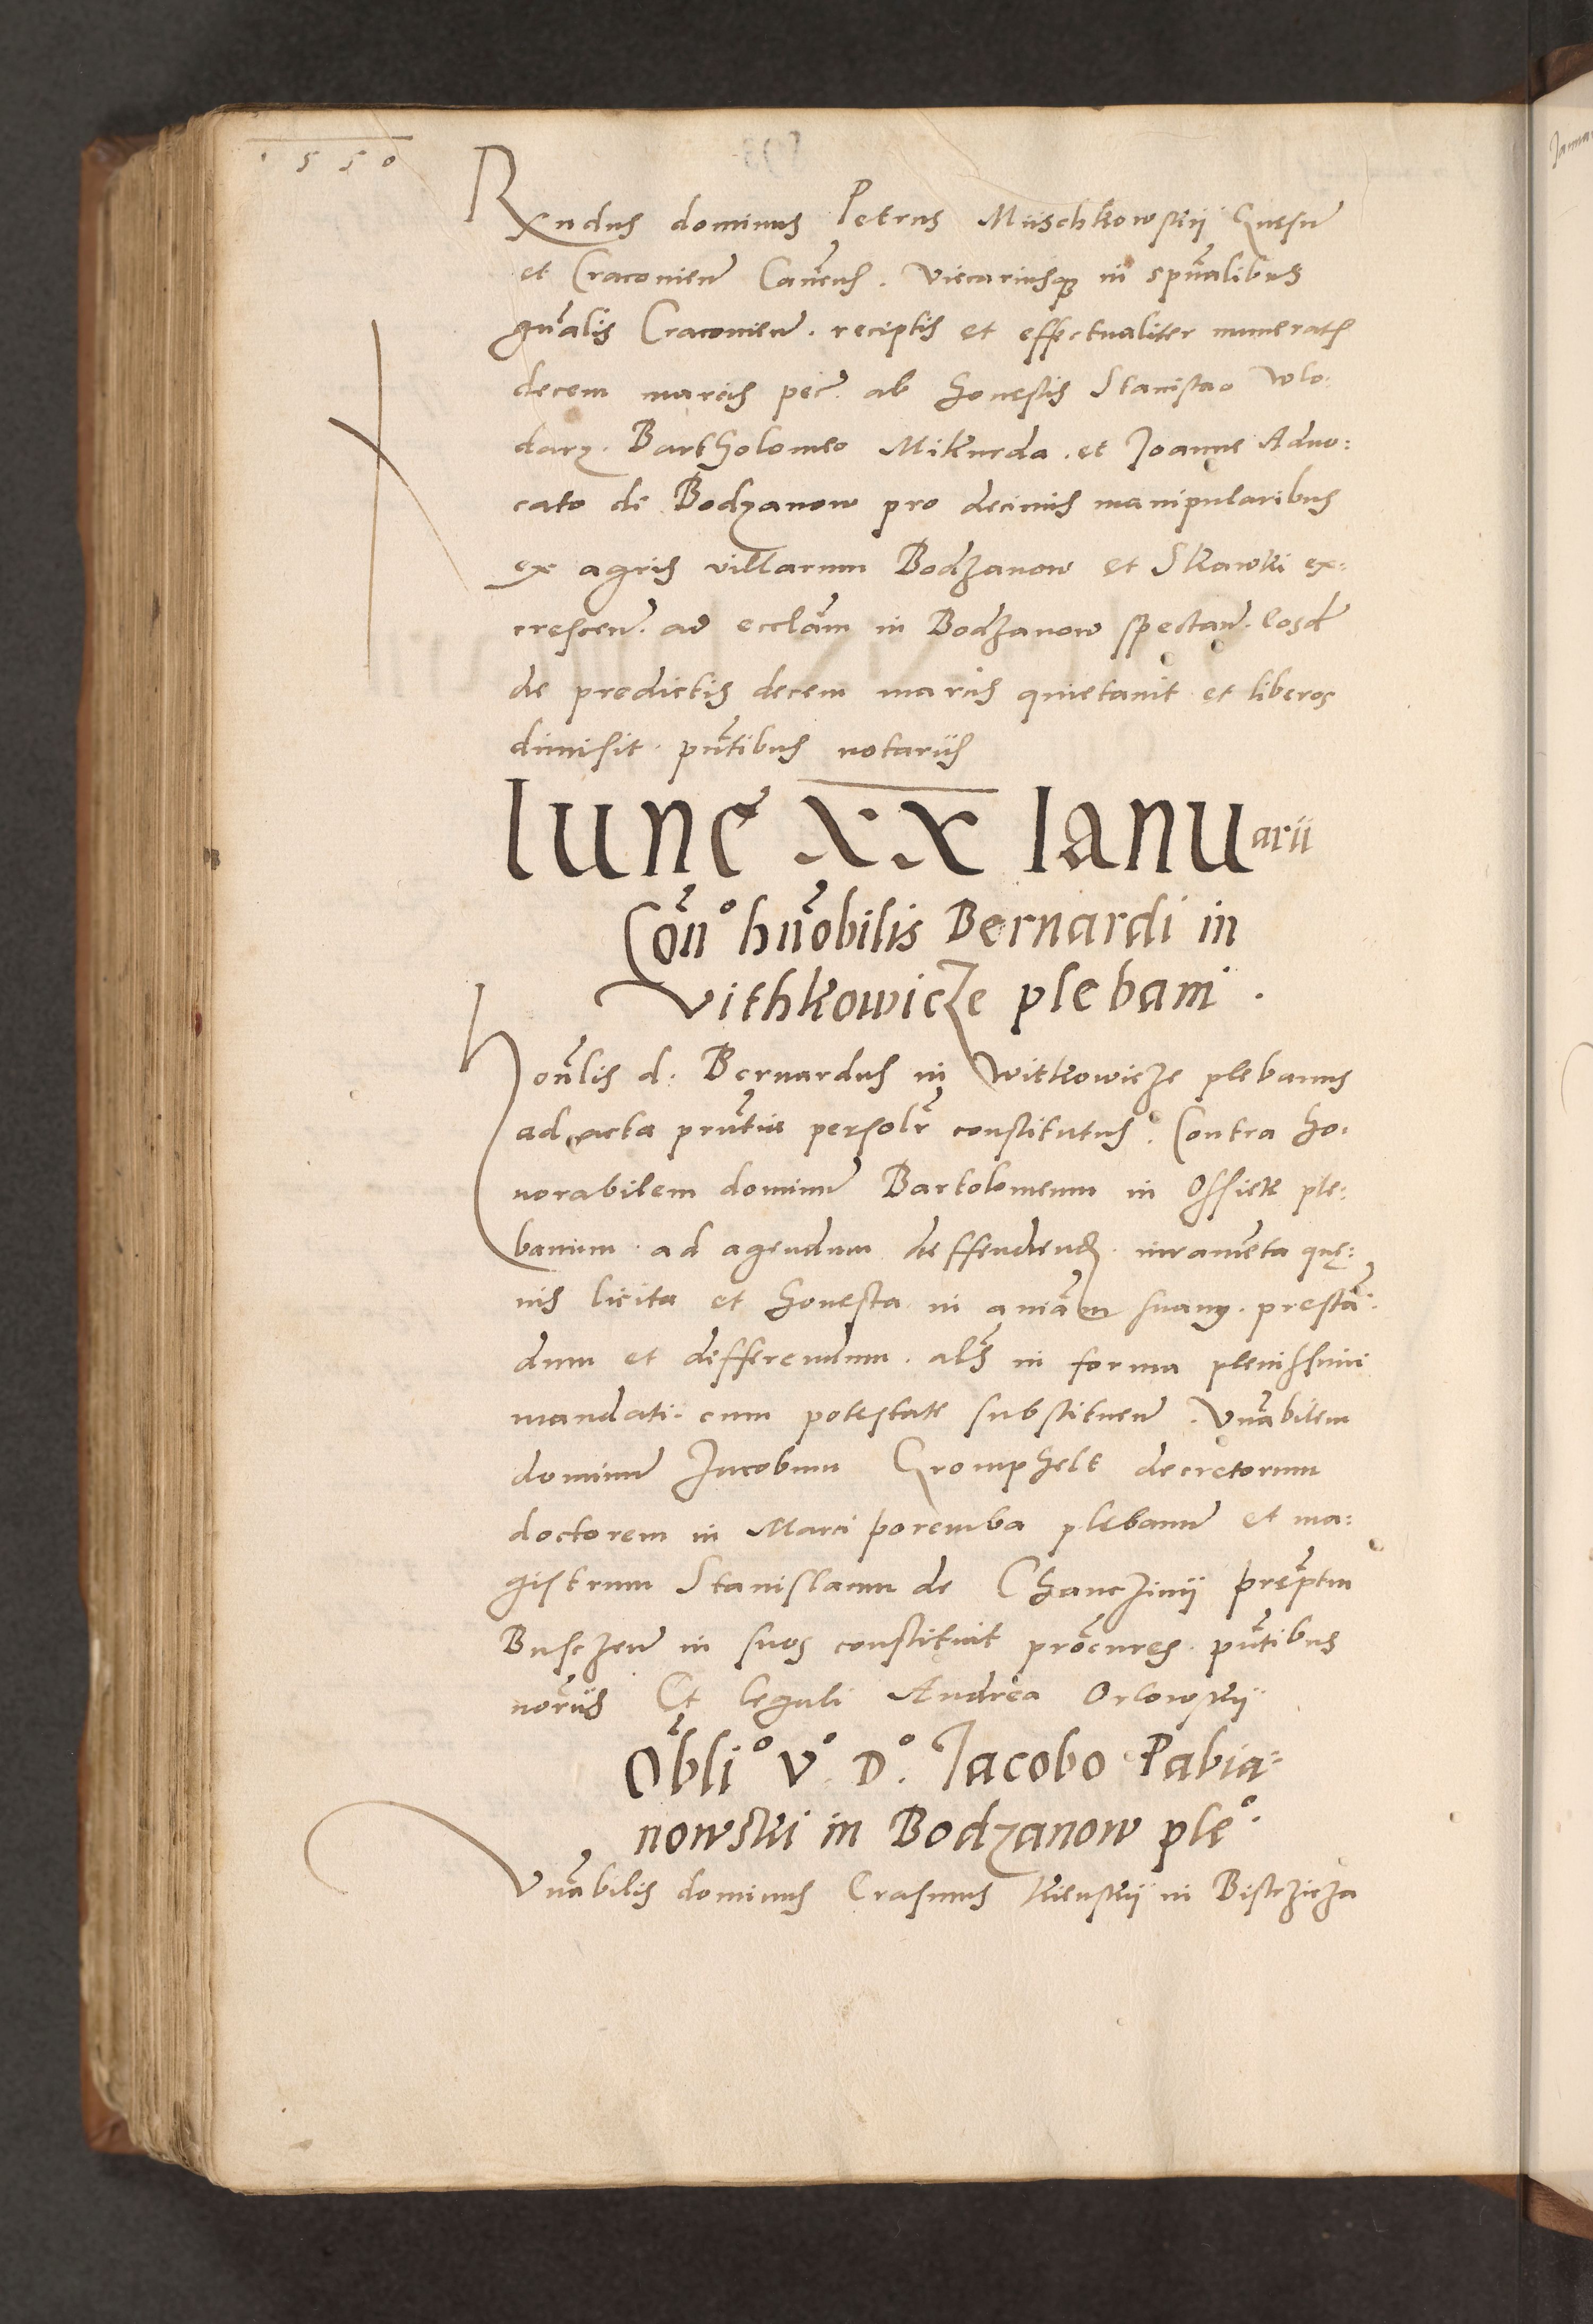 1550
Rxndus dominus Petrus Miischkowskij Gnesn̄
et Cracovien̄ Canc̄us. Viecariusq in spūalibus
gn̄alis Cracovien̄. receptis et effectualiter numeratis
decem marcis pec̄. ab honestis Stanislao Wlo:
darz. Bartholomeo Mikurda. et Joanne Advo:
cato de Bodzanow pro decimis manipularibus
ex agris villarum Bodzanow et Skawki ex:
crescen̄. ad eccl̄am in Bodzanow spectan̄. Eosd̄
de predictis decem marcis quietavit et liberos
dimisit. pn̄tibus notariis
lune XX Ianuarii
Cōn° hn̄obilis Bernardi in
Vithkowicze plebani.
Hon̄lis d. Bernardus in Witkowicze plebanus
ad acta prn̄tia persolr̄ constitutus. Contra ho:
norabilem dominū Bartolomeum in Ossiek ple:
banum. ad agendum deffendend. iuramenta quę:
vis licita et honesta in aniām suam. prestā:
dum et defferendum. als̄ in forma plenissimi
mandati. cum potestate substituen̄. Vn̄abilem
dominū Jacobum Gromphelt decretorum
doctorem in Marci poremba plebanū et ma:
gistrum Stanislaum de Chanczinij pręp̄tm
Busczen̄ in suos constituit prōcures. pn̄tibus
nōriis Et leguli Andrea Orlowskij
Ōbli° V° D°. Jacobo Pabia=
nowski in Bodzanow ple°.
Vn̄abilis dominus Erasmus Kienskij in Bistrzicza